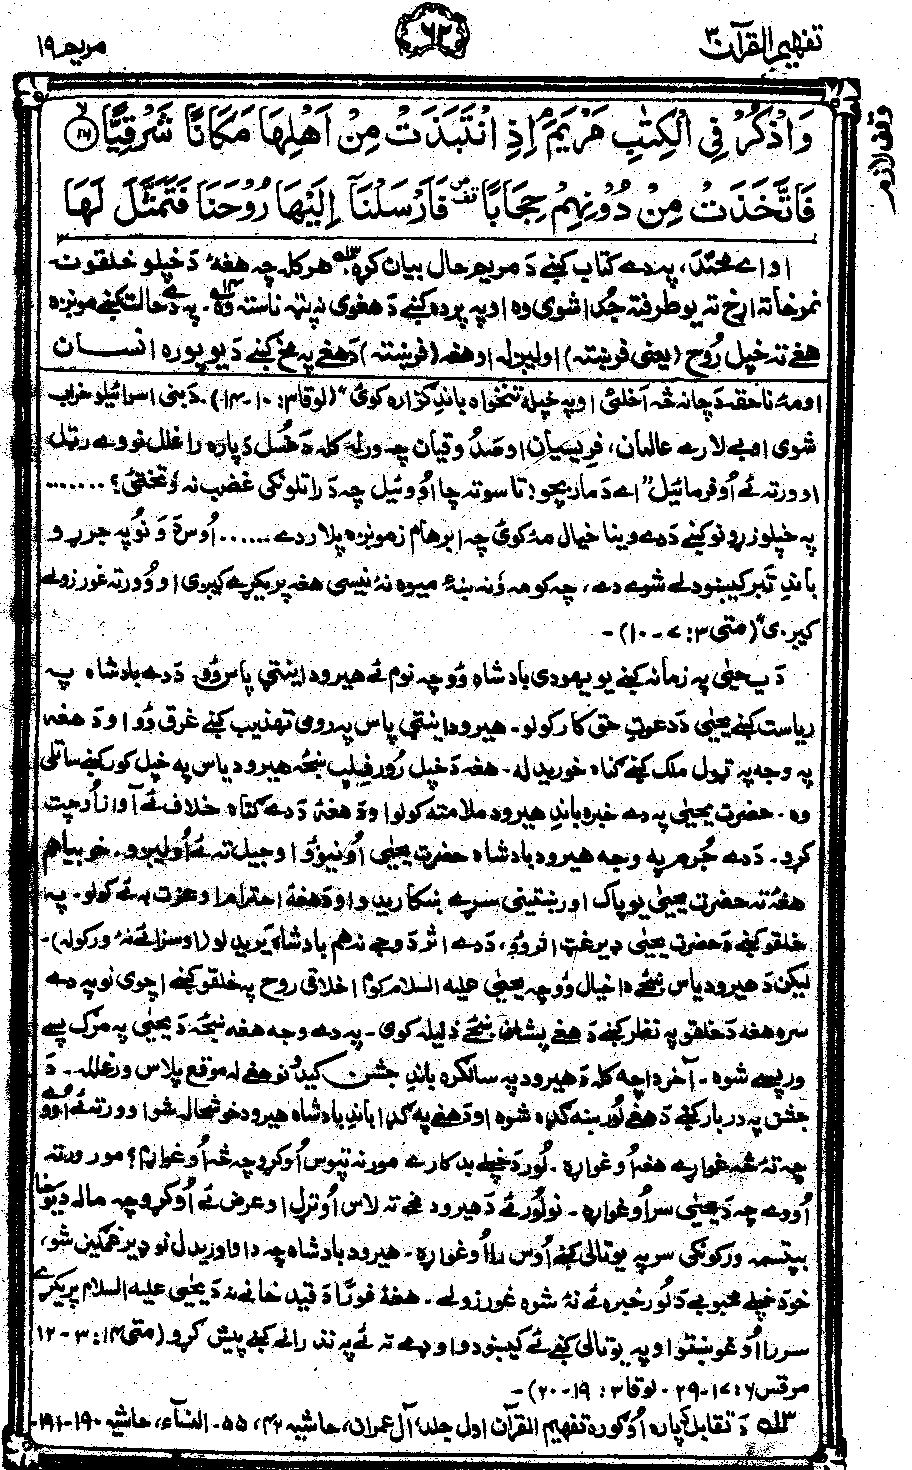 تفهیم القرآن ۳
۶۲
مریم ۱۹
وقف لازم
وَاذْكُرْ فِی الْكِتٰبِ مَرْیَمَ ۘ اِذِ انْتَبَذَتْ مِنْ اَهْلِهَا مَكَانًا شَرْقِیًّا ۙ﴿۱۶﴾
فَاتَّخَذَتْ مِنْ دُوْنِهِمْ حِجَابًا ۪۫ فَاَرْسَلْنَاۤ اِلَیْهَا رُوْحَنَا فَتَمَثَّلَ لَهَا
او اے محمّدؐ، په دے کتاب کښے دَ مریم حال بیان کړه، هر کله چه هغهٔ دَ خپلو خلقو نه
نمرخاتهٔ اړخ ته یو طرف ته جُدا شوی وه او په پرده کښے دَ هغوی نه پټه ناسته وه. په دے حالت کښے مونږه
هغے ته خپل رُوح (یعنی فرښته) اولیږله او هغه (فرښته) دَ هغے په مخ کښے دَ یو پوره انسان
او مهٔ ناحقه دَ چا نه څهٔ اخلئ او په خپله تنخواه باندِ گزاره کوئ“ (لوقا ۳: ۱۰-۱۴). دَ بنی اسرائیلو خراب
شوی او بے لارے عالمان، فریسیان او صدُوقیان چه ورله کله دَ غُسل دَ پاره راغلل نو وے رټل
او ورته ئے اُوفرمائیل ”اے دَ مار بچو! تاسو ته چا اُووئیل چه دَ راتلونکی غضب نه وُتښتئ؟ .......
په خپلو زړونو کښے دَ دے وینا خیال مهٔ کوئ چه ابرهام زمونږه پلار دے ...... اُوس دَ وَنُو په جرړو
باندِ تبر کیښودلے شوے دے، چه کومه وَنه ښهٔ میوه نهٔ نیسی هغه پریکړے کیږی او وُور ته غورزولے
کیږی“ (متی ۳: ۷-۱۰)-
دَ یحیٰی په زمانه کښے یو یهودی بادشاه وُو چه نوم ئے هیرود اینتی پاس وُو. دَ دے بادشاه په
ریاست کښے یحیٰی دَ دعوتِ حق کار کولو. هیرود اینتی پاس په رومی تهذیب کښے غرق وُو او دَ هغه
په وجه په ټول ملک کښے گناه خوریدله. هغه دَ خپل رُور فیلپ ښځه هیرود یاس په خپل کور کښے ساتلی
وه. حضرت یحیٰی په دے خبره باندِ هیرود ملامته کولو او دَ هغهٔ دَ دے گناه خلاف ئے آواز اُوچت
کړو. دَ دے جُرم په وجه هیرود بادشاه حضرت یحیٰی اُونیوُو او جیل ته ئے اُولیږو. خو بیا هم
هغهٔ ته حضرت یحیٰی یو پاک او رښتینی سړے ښکاریدو او دَ هغهٔ احترام او عزت به ئے کولو. په
خلقو کښے دَ حضرت یحیٰی ډیر غټ اثر وُو، دَ دے اثر دَ وجے نه هم بادشاه یریدلو (او سزا ئے نهٔ ورکوله)-
لیکن دَ هیرود یاس ښځے دا خیال وُو چه یحیٰی علیه السلام کوم اخلاقی روح په خلقو کښے اچوی نو په دے
سره هغه دَ خلقو په نظر کښے دَ هغے پشان ښځے ذلیله کوی. په دے وجه هغه ښځه دَ یحیٰی په مرگ پسے
ورپسے شوه. آخر دا چه کله دَ هیرود په سالگره باندِ جشن کیدو نو هغے له موقع په لاس ورغلله. دَ
جشن په دربار کښے دَ هغے لُور ښه گډه شوه او دَ هغے په گډا باندِ بادشاه هیرود خوشحاله شو او ورته ئے اُووے
چه تهٔ څهٔ غواړے هغه اُوغواړه. لُور دَ خپلے بدکارے مور نه تپوس اُوکړو چه څهٔ اُوغواړم؟ مور ورته
اُووے چه دَ یحیٰی سر اُوغواړه. نو لُور ئے دَ هیرود مخے ته لاس اُوتړل او عرض ئے اُوکړو چه ماله دَ یوحنا
بپتسمه ورکونکی سر په یو تالی کښے اُوس را اُوغواړه. هیرود بادشاه چه دا واوریدل نو ډیر غمگین شو،
خو دَ خپلے محبوبے دَ لُور خبره ئے نهٔ شوه غورزولے. هغهٔ فورًا دَ قید خانے نه دَ یحیٰی علیه السلام پریکړے
سر را اُوغوښتو او په یو تالی کښے ئے کیښودو او دے ته ئے په نذرانے کښے پیش کړو (متی ۱۴: ۳-۱۲
مرقس ۶: ۱۷-۲۹، لوقا ۳: ۱۹-۲۰)-
۱۳ه دَ تقابل دپاره اُوگوره تفهیم القرآن اول جلد، آل عمران، حاشیه ۴۲، ۵۵. النساء، حاشیه ۱۹۰-۱۹۱-